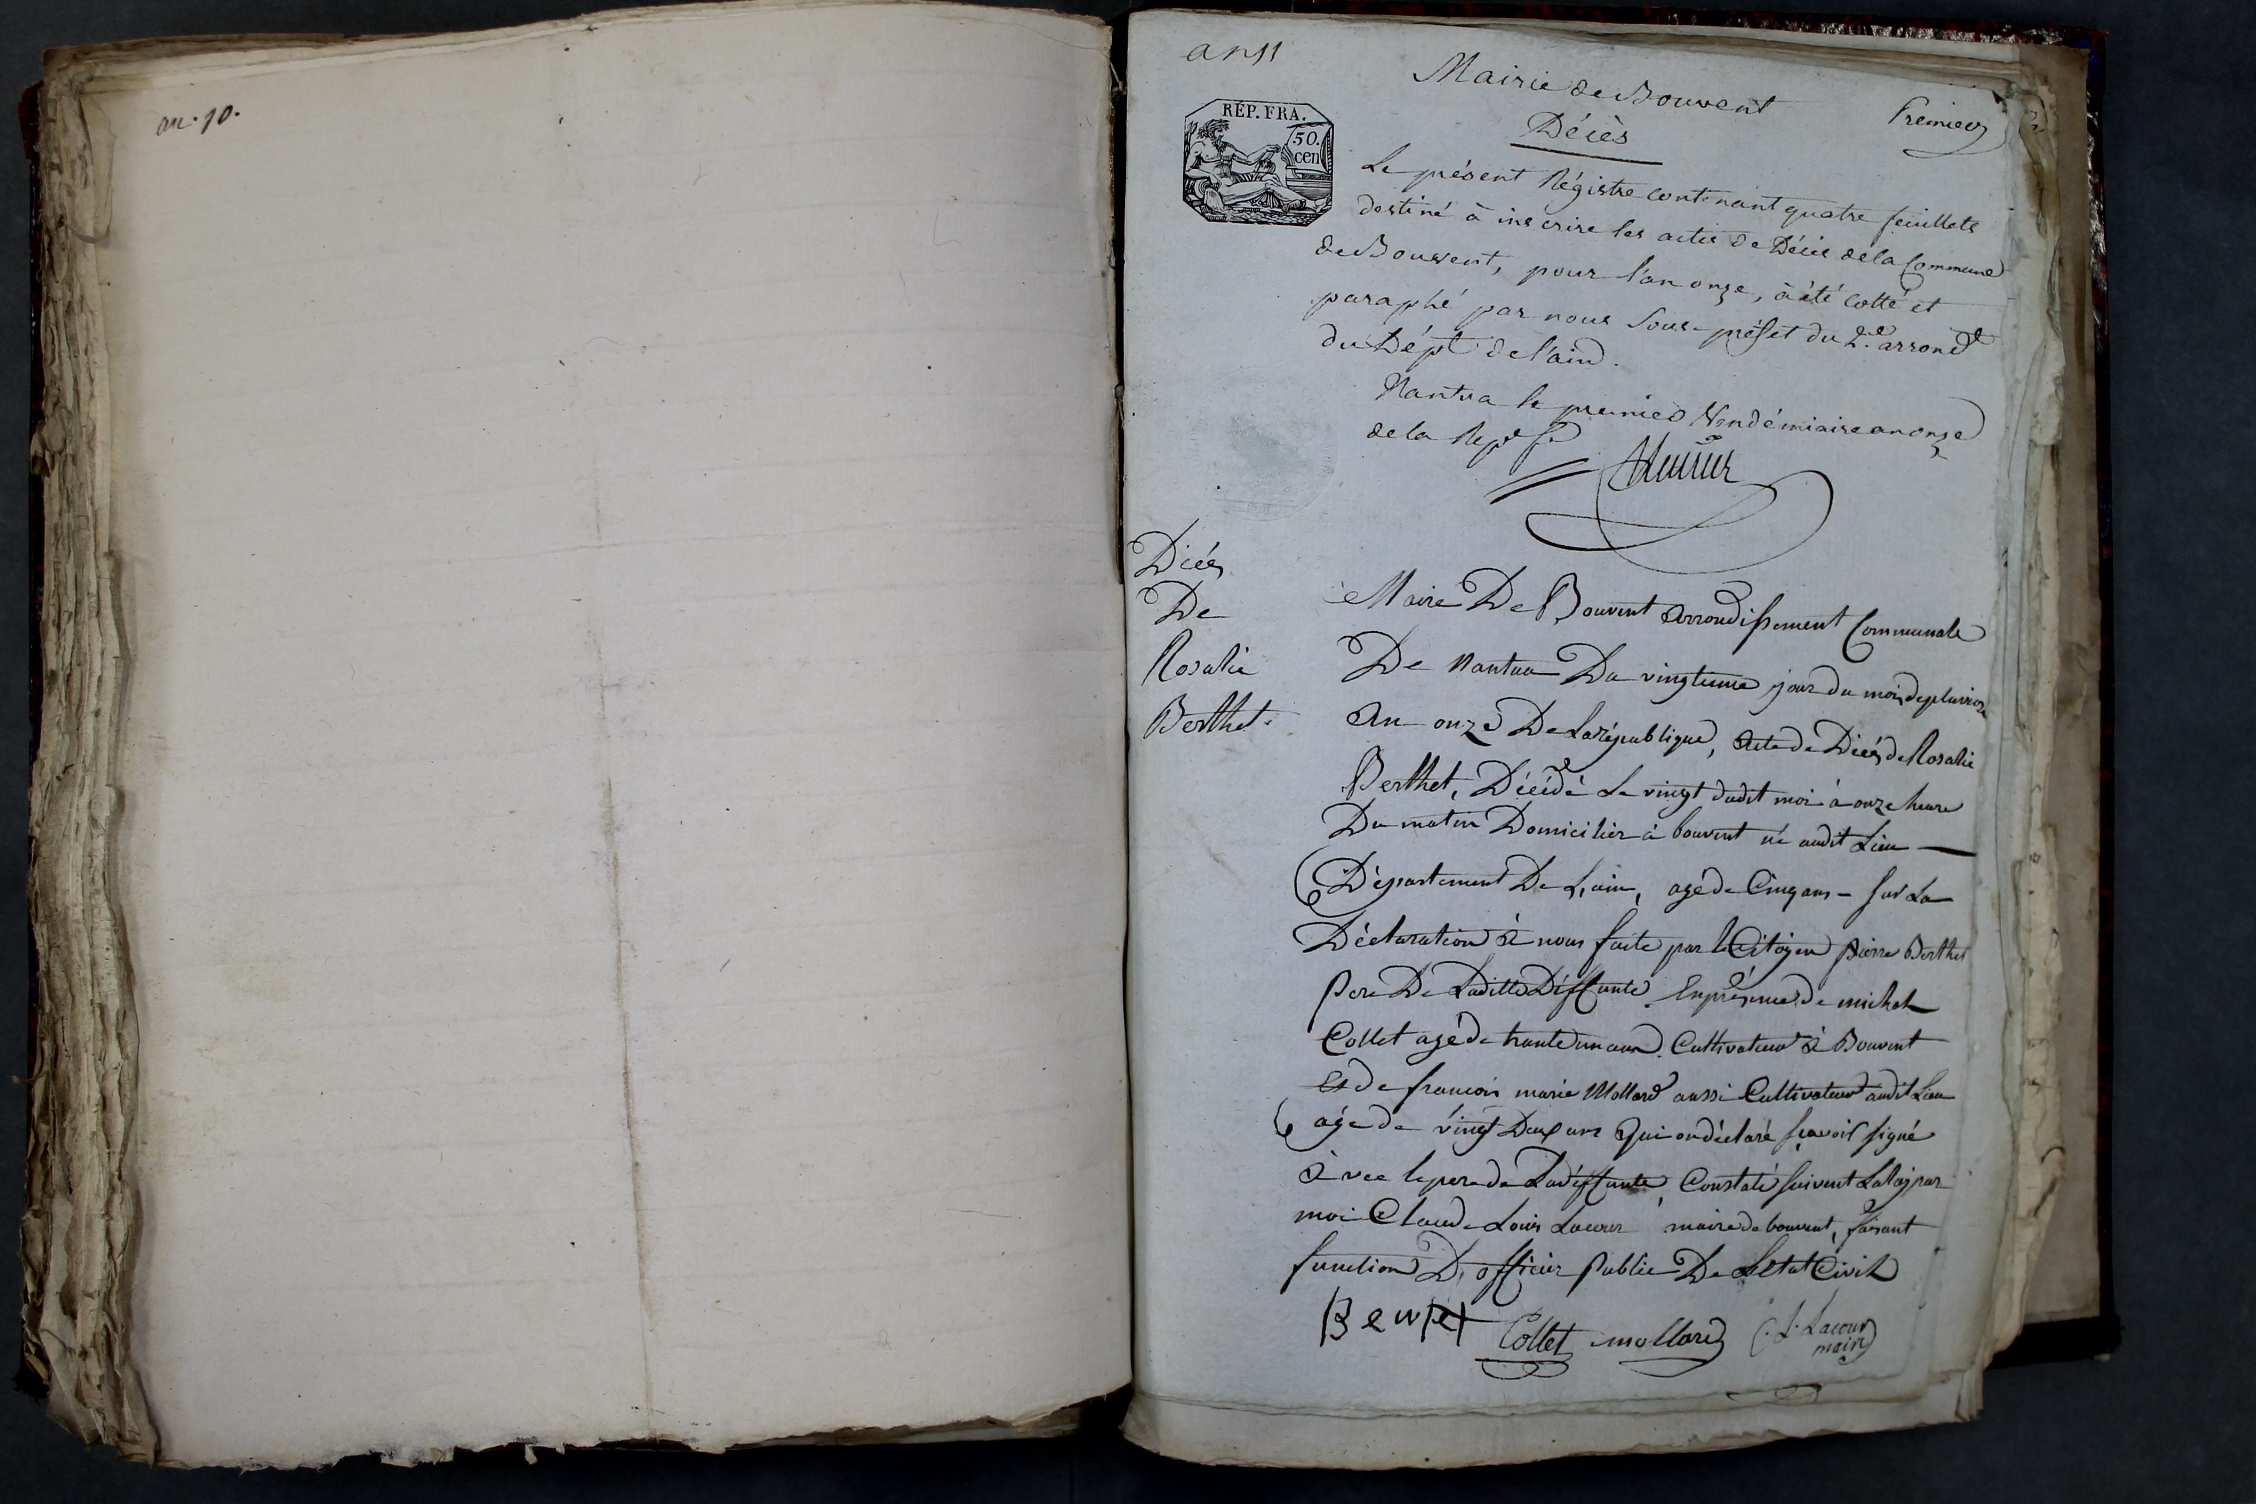 an. 10.
an 11
Mairie de Bouvent
Premier
Décès
RÉP. FRA.
50.
cen
Le présent Régistre contenant quatre feuillets
destiné à inscrire les actes de Décès de la Commune
de Bouvent, pour l'an onze, à été cotté et
paraphé par nous Sous-préfet du 2.e arrond.t
du Dép.t de l'ain.
Nantua le premier Vendémiaire an onze
de la Rep.e f.se
Décés
De
Rosalie
Berthet.
Maire De Bouvent arrondissement Communale
De Nantua Du vingtieme jour du mois de pluviose
An onze De La république, Acte de Décés de Rosalie
Berthet, Décédé Le vingt dudit moi à onze heure
Du matin Domicilier à bouvent né audit Lieu —
Département De L'ain, agé de Cinq ans - sur La
Déclaration à nous faite par le Citoyen pierre Berthet
Pere De Laditte Déffunte En présence de michel
Collet agé de trante un ans Cultivateur à Bouvent
Et de francois marie Mollard aussi Cultivateur audit Lieu
age de vingt Deux ans Qui on déclaré sçavoir signé
à vec le pere de La déffunte, Constaté suivent La loy par
moi Claude Louis Lacour maire de bouvent, faisant
function D'officier Public De L'état Civil
Collet mollard C. L. Lacour
maire